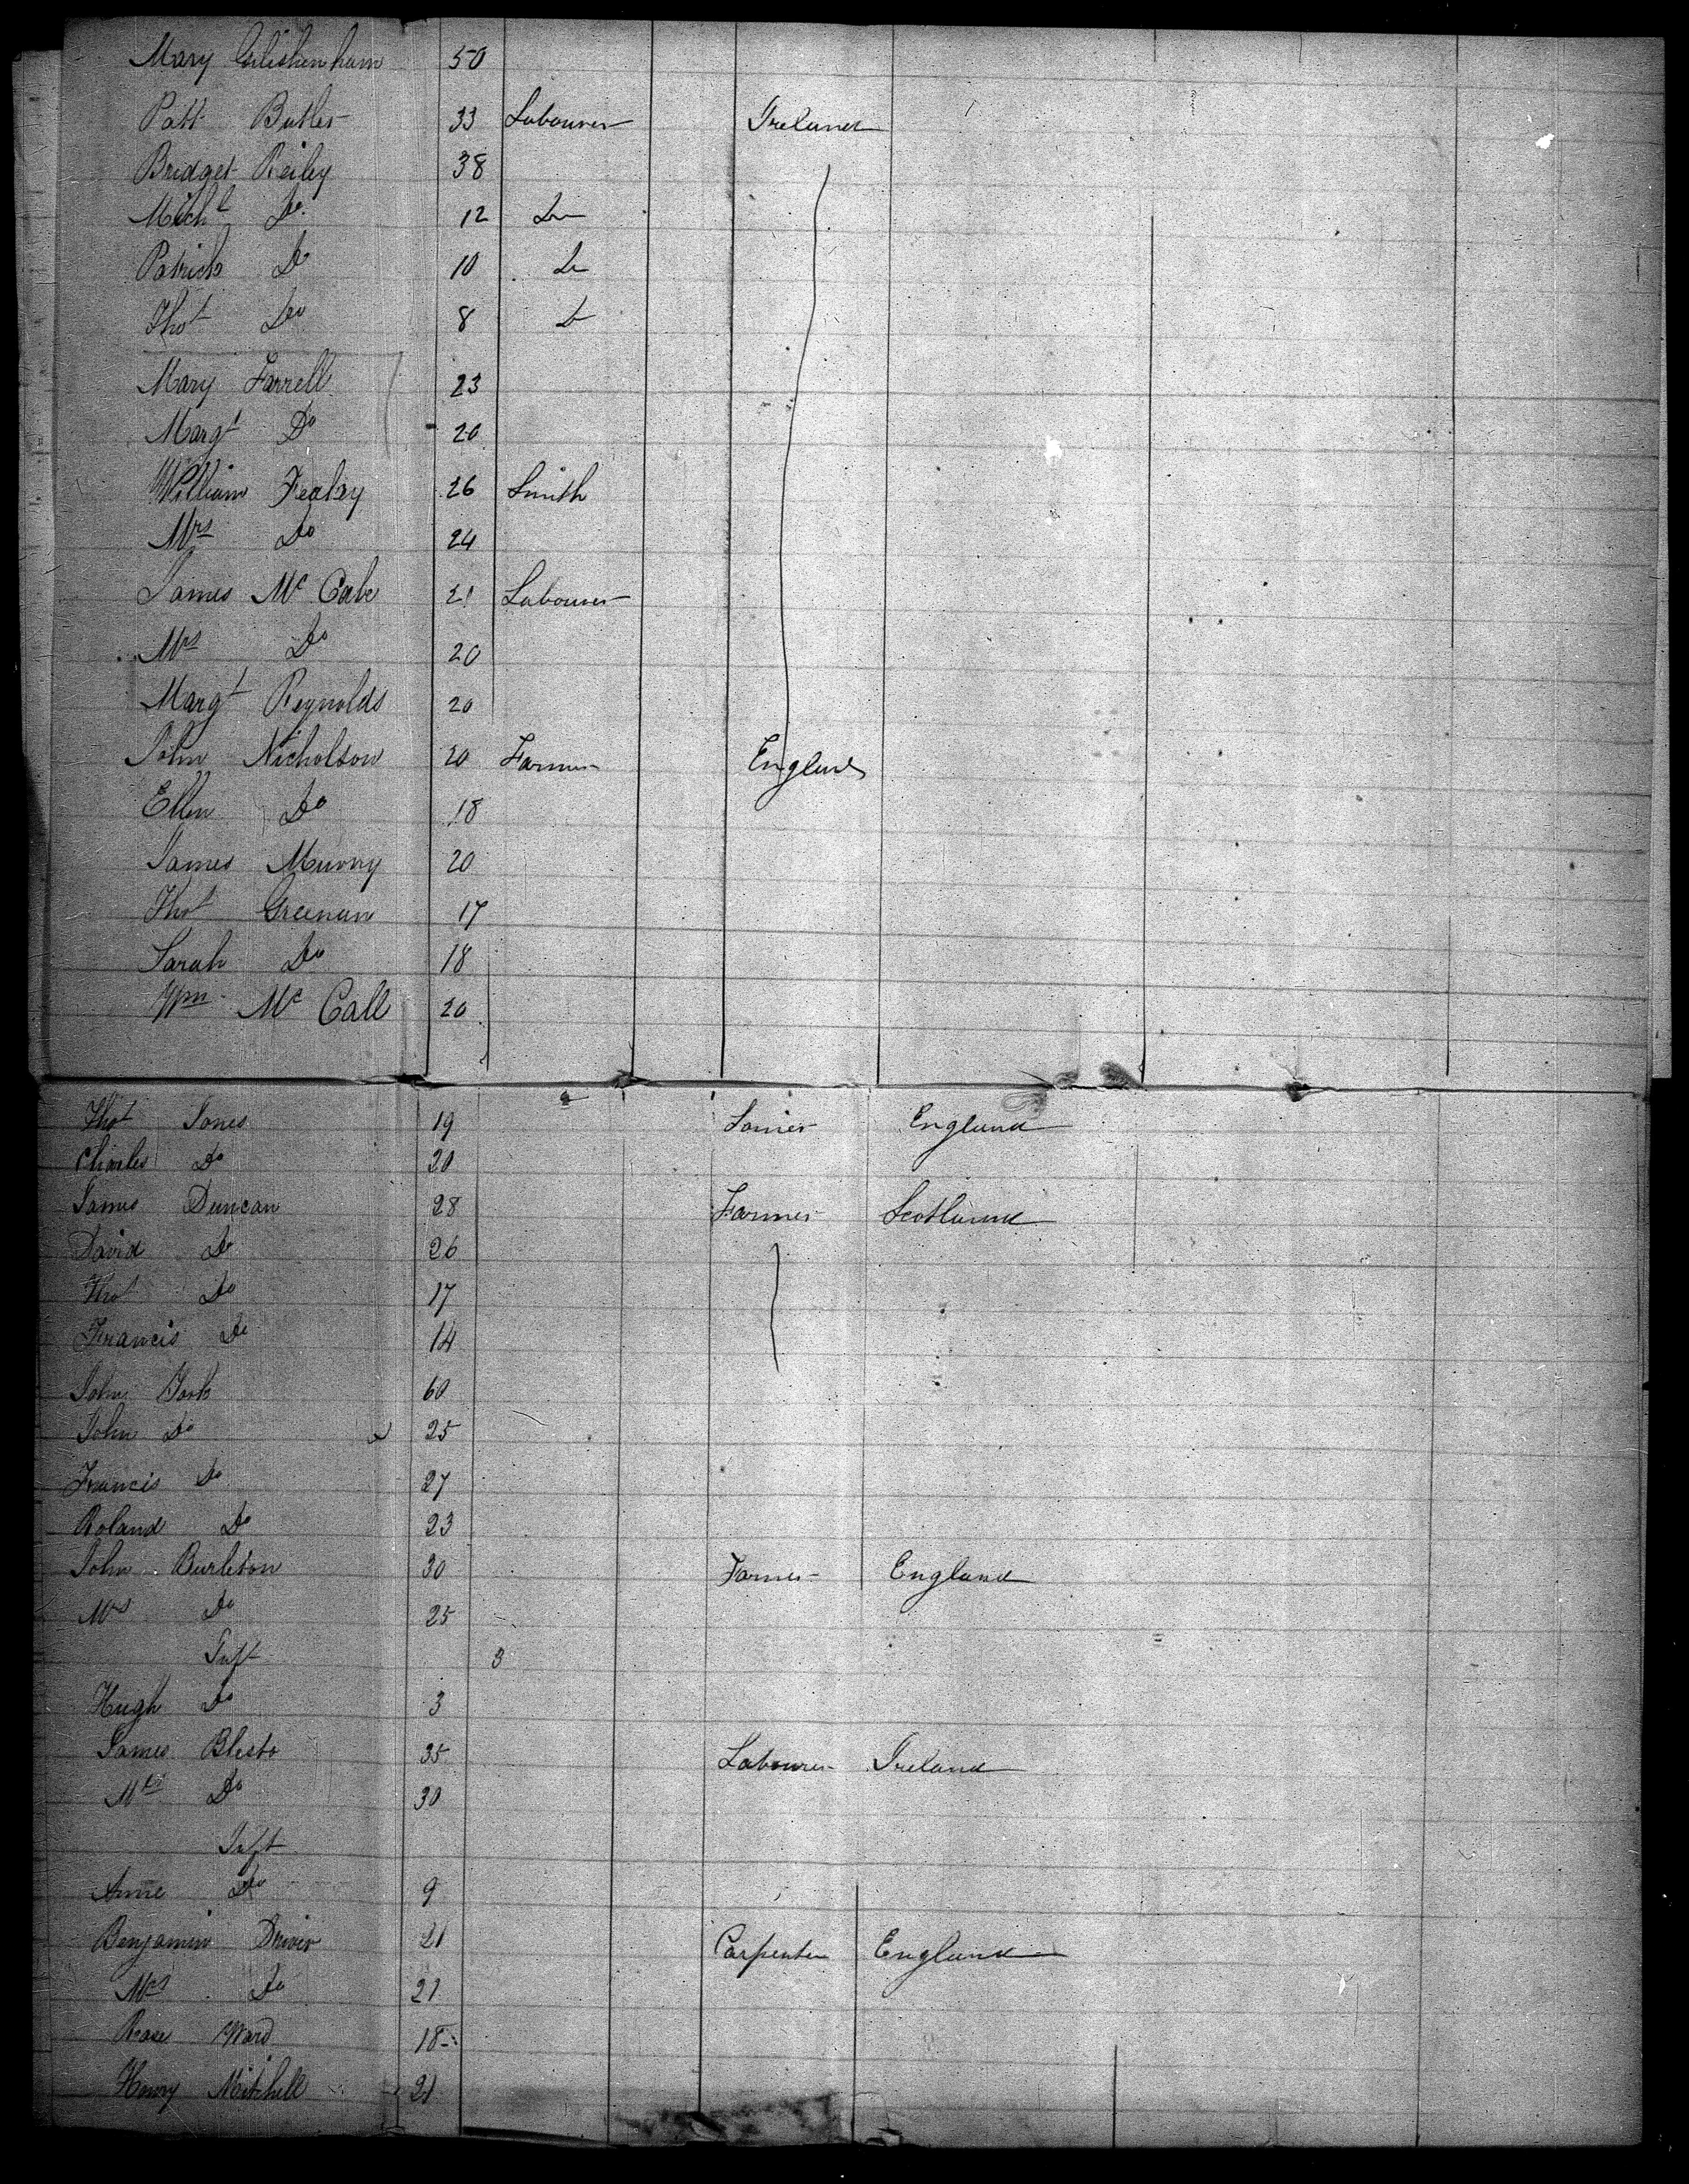 Mary 50
Patt Butler 33 Labourer Ireland
Bridget Reiley 38
Michl Do 12 Do
Patrick Do 10 Do
Thos Do 8 Do
Mary Farrell 23
Margt Do 20
William 26 Smith
Mrs Do 24
James Mc Cabe 21 Labourer
Mrs Do 20
Margt Reynolds 20
John Nicholson 20 Farmer England
Ellen Do 18
James Murry 20
Thos Greenan 17
Sarah Do 18
Wm Mc Call 20
Thos Jones 19 England
Charles Do 20
James Duncan 28 Farmer Scotland
David Do 26
Thos Do 17
Francis Do 14
John York 60
John Do 25
Francis Do 27
Roland Do 23
John Burleton 30 Farmer England
Mrs Do 25
Inft 3
Hugh Do 3
James 35 Labourer Ireland
Mrs Do 30
Inft
Anne Do 9
Benjamin Driver 21 Carpenter England
Mrs Do 21
Rose Ward 18
Henry Mitchell 21